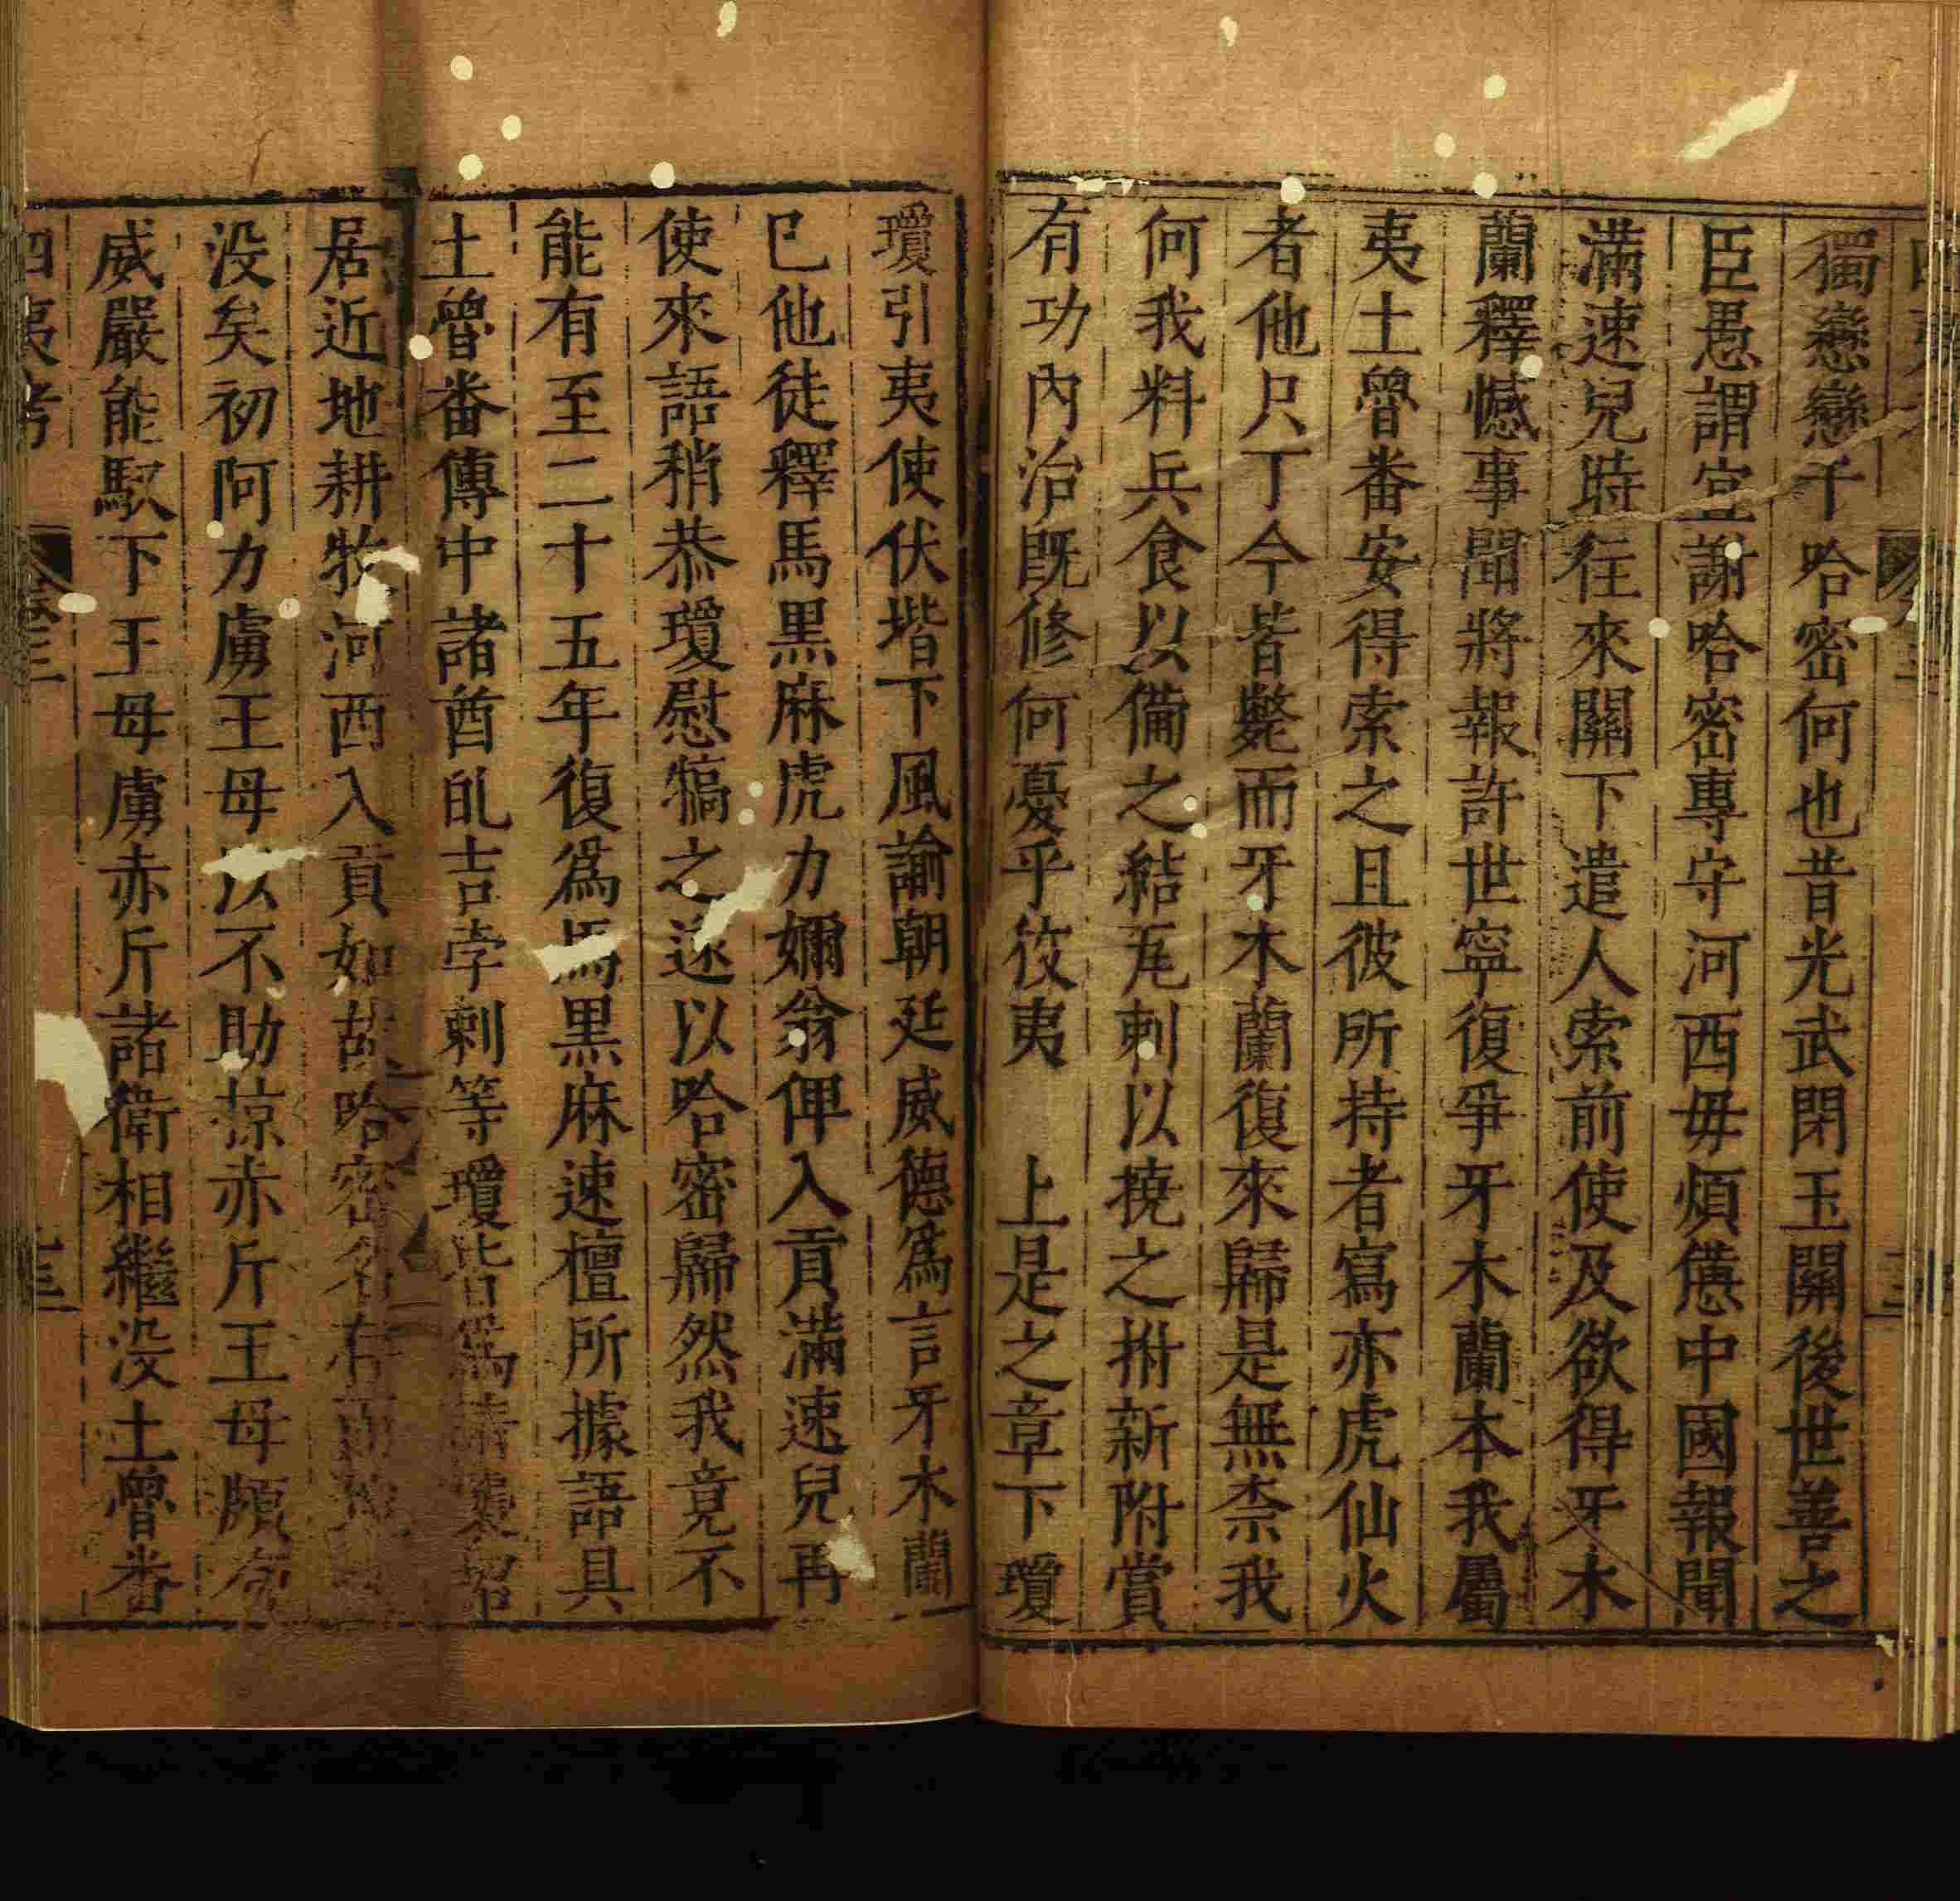 獨戀戀于哈密何也昔光武閉玉關後世善之
臣愚謂宜謝哈密專守河西毋煩憊中國報聞
滿速兒時往來關下遣人索前使及欲得牙木
蘭釋憾事聞將報許世寧復爭牙木蘭本我屬
夷土魯番安得索之且彼所持者寫亦虎仙火
者他只丁今皆斃而牙木蘭復來歸是無柰我
何我料兵食以備之結瓦剌以撓之拊新附賞
有功內治既修何憂乎彼夷　上是之章下瓊
瓊引夷使伏堦下風諭朝廷威德爲言牙木蘭
已他徙釋馬黑麻虎力嬭翁俾入貢滿速兒再
使來語稍恭瓊慰犒之遂以哈密歸然我竟不
能有至二十五年復爲馬黑麻速檀所據語具
土魯番傳中諸酋癿吉孛剌等瓊皆爲請
居近地耕牧河西入貢如故哈密
没矣初阿力虜王母以不助掠赤斤王母頗
威嚴能馭下王母虜赤斤諸衛相繼没土魯番
四夷考　卷三